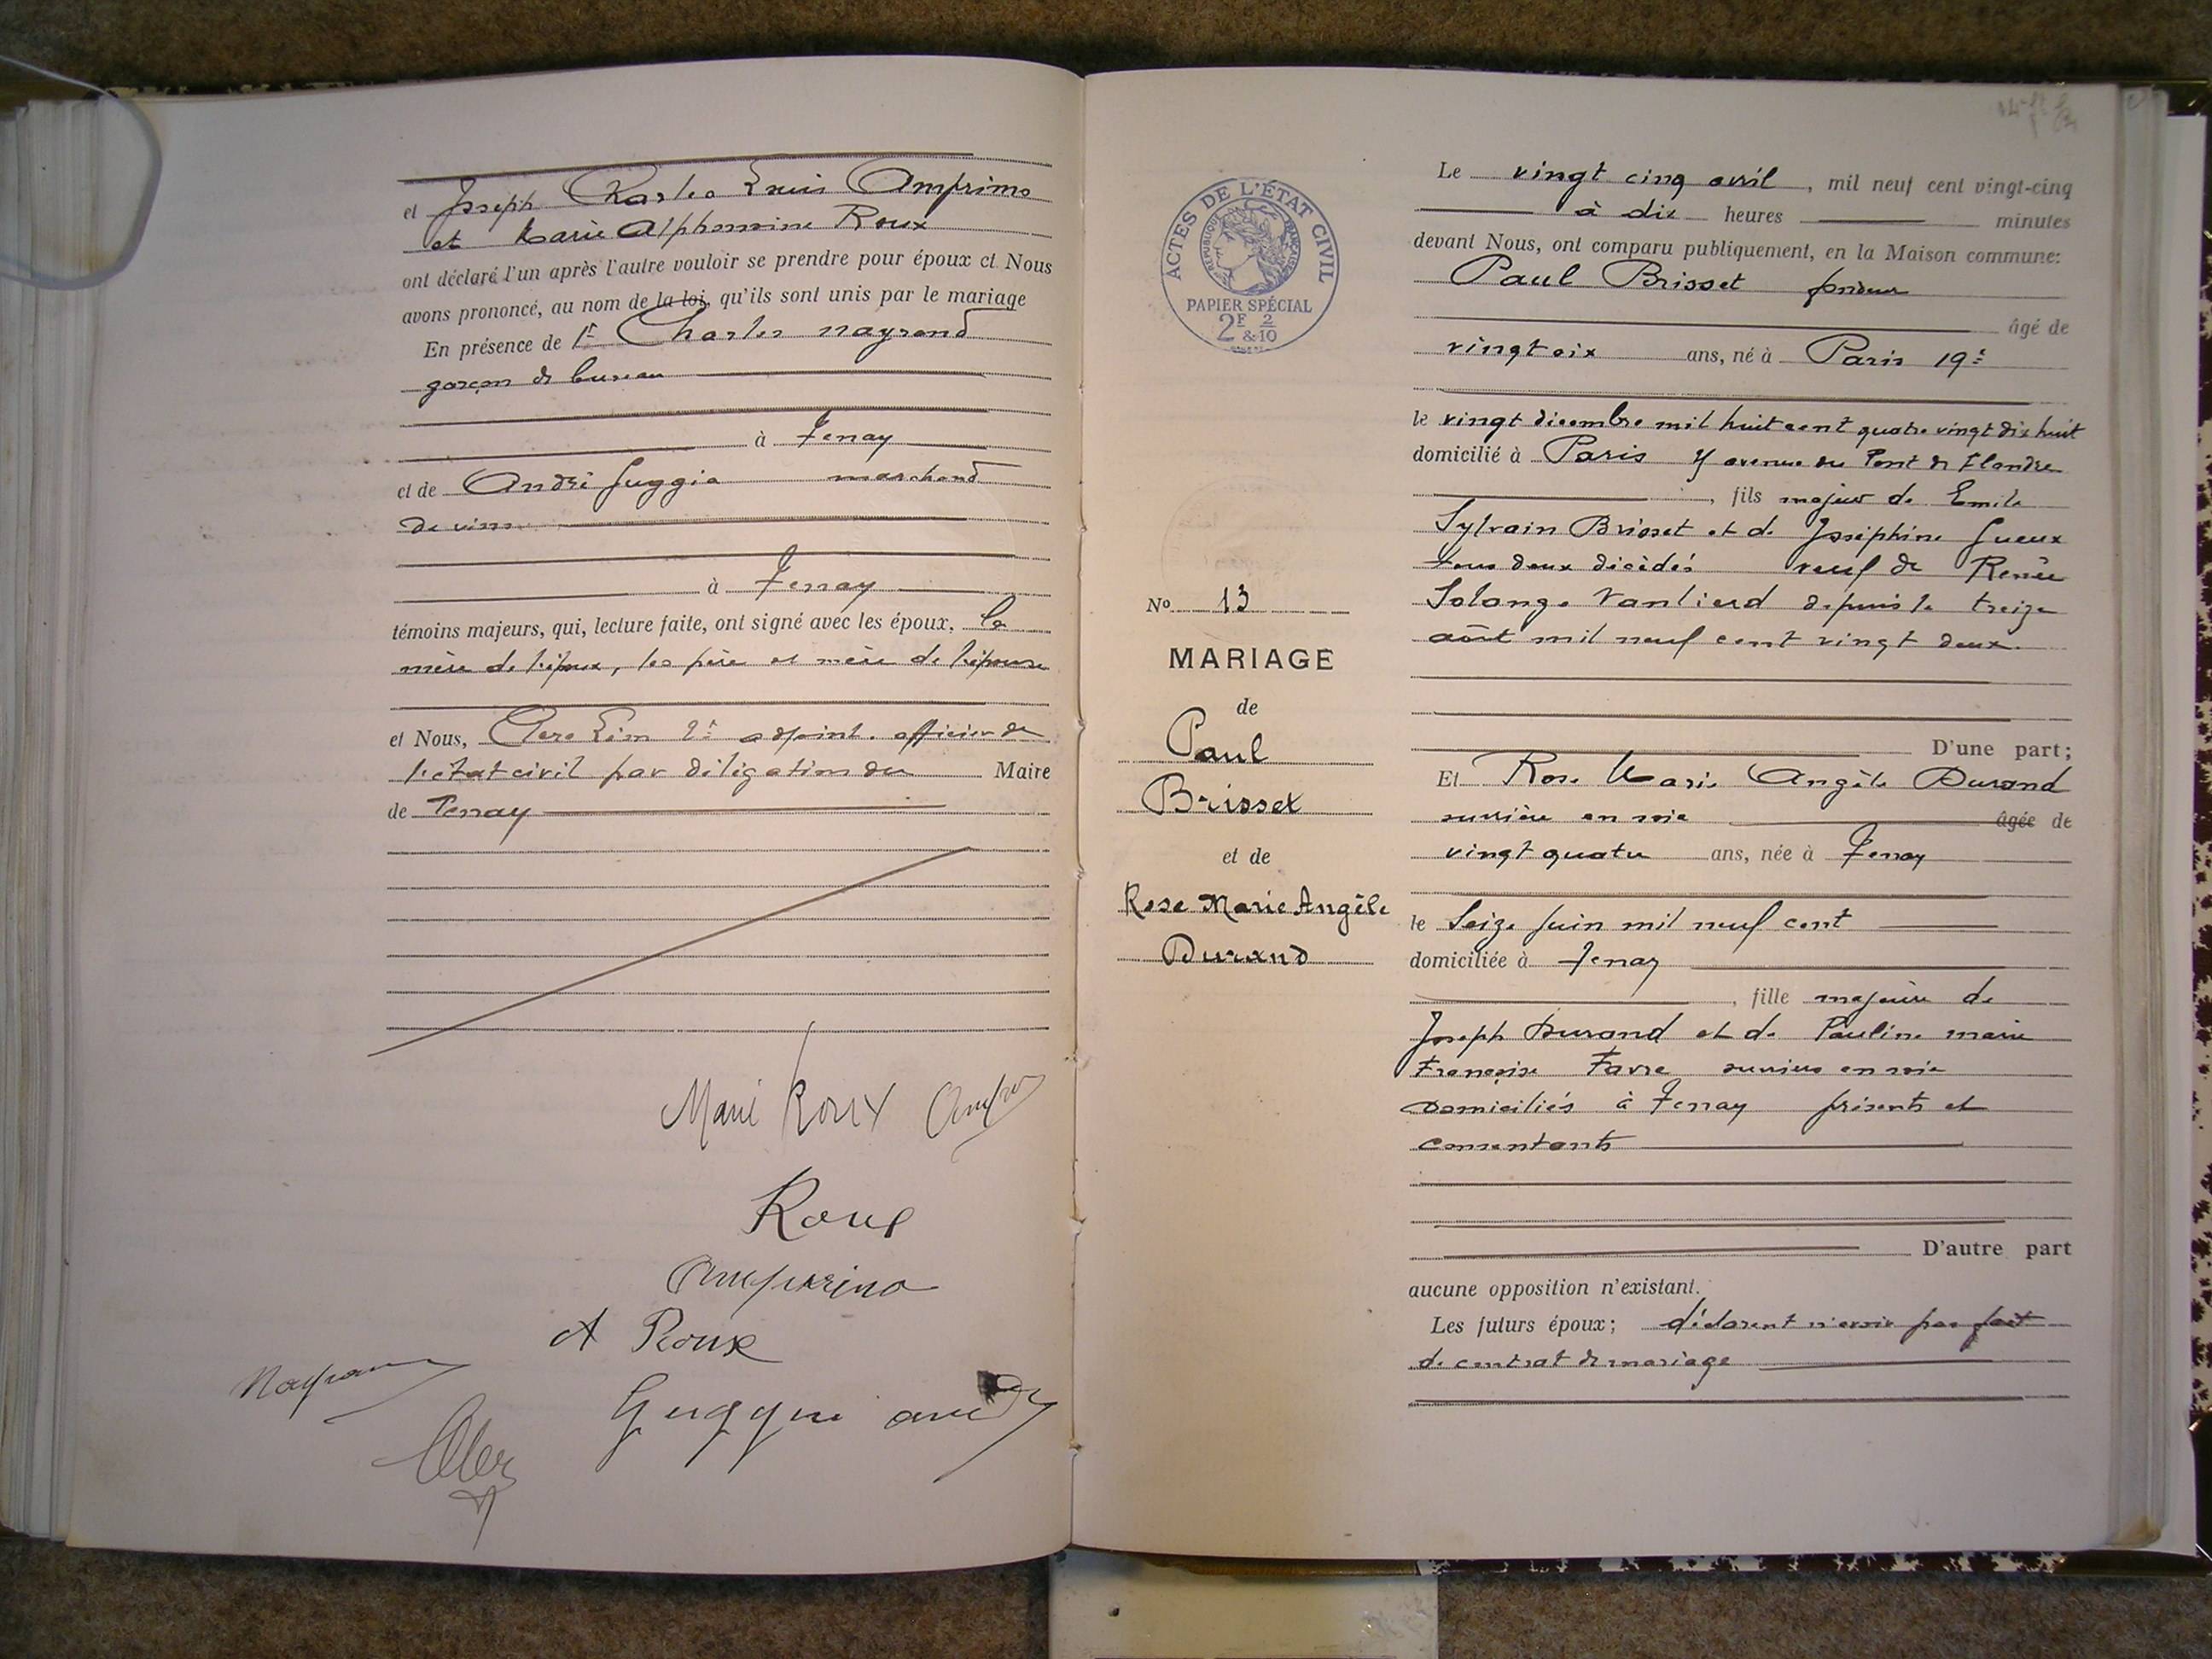 et Joseph Charles Louis Amprimo
et Marie Alphonsine Roux
ont déclaré l'un après l'autre vouloir se prendre pour époux et Nous
avons prononcé, au nom de la loi, qu'ils sont unis par le mariage
En présence de 1° Charles Nayrand
garçon de bureau
à Tenay
et de André Guggia marchand
de vins
à Tenay
témoins majeurs, qui, lecture faite, ont signé avec les époux, la
mère de l'époux, les père et mère de l'épouse
et Nous, Clerc Léon 2e adjoint officier de
l'état civil par délégation du Maire
de Tenay
Marie Roux
Roux
Amprimo
A Roux
Nayrand
Le vingt cinq avril, mil neuf cent vingt-cinq
à dix heures minutes
devant Nous, ont comparu publiquement, en la Maison commune:
Paul Brisset
âgé de
vingt six ans, né à Paris 19e
le vingt décembre mil huit cent quatre vingt dix huit
domicilié à Paris avenue du Pont de Flandre
, fils majeur de Emile
Sylvain Brisset et de Joséphine Gueux
tous deux décédés veuf de Renée
Solange Vanlierd depuis le treize
août mil neuf cent vingt deux.
D'une part;
Et Rose Marie Angèle Durand
ouvrière en soie âgée de
vingt quatre ans, née à Tenay
le Seize Juin mil neuf cent
domiciliée à Tenay
, fille majeure de
Joseph Durand et de Pauline Marie
Françoise Favre ouvriers en soie
domiciliés à Tenay présents et
consentants
D'autre part
aucune opposition n'existant.
Les futurs époux; déclarent n'avoir pas fait
de contrat de mariage
ACTES DE L'ÉTAT CIVIL
RÉPUBLIQUE FRANÇAISE
PAPIER SPÉCIAL
2F 2
&10
No 13
MARIAGE
de
Paul
Brisset
et de
Rose Marie Angèle
Durand